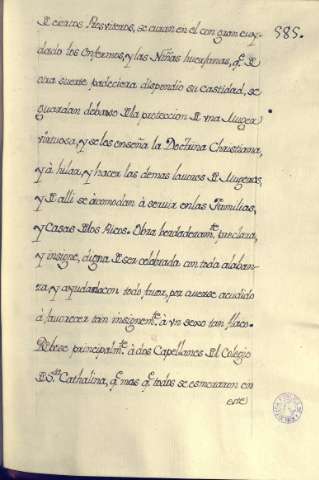 585.
D ciertos Presviteros, se curan en el con gran cuy-
dado los Enfermos, y las Niñas huerfanas, q̃ D
otra suerte padeciera dispendio su castidad, se
guardan debaxo D la proteccion D vna Muger
virtuosa, y se les enseña la Doctrina Christiana,
y à hilar, y hacer las demas lavores D Mugeres,
y D alli se acomodan à servir en las Familias,
y Casas D los Ricos. Obra berdaderam.te preclara,
y insigne, digna D ser celebrada con toda alaban-
za, y ayudarla con todo favor, por averse acudido
à favorecer tan insignem.te à vn sexo tan flaco.
Debese principalm.te à dos Capellanes D l Colegio
D S.ta Cathalina, q̃ mas q̃ todos se esmeraron en
este